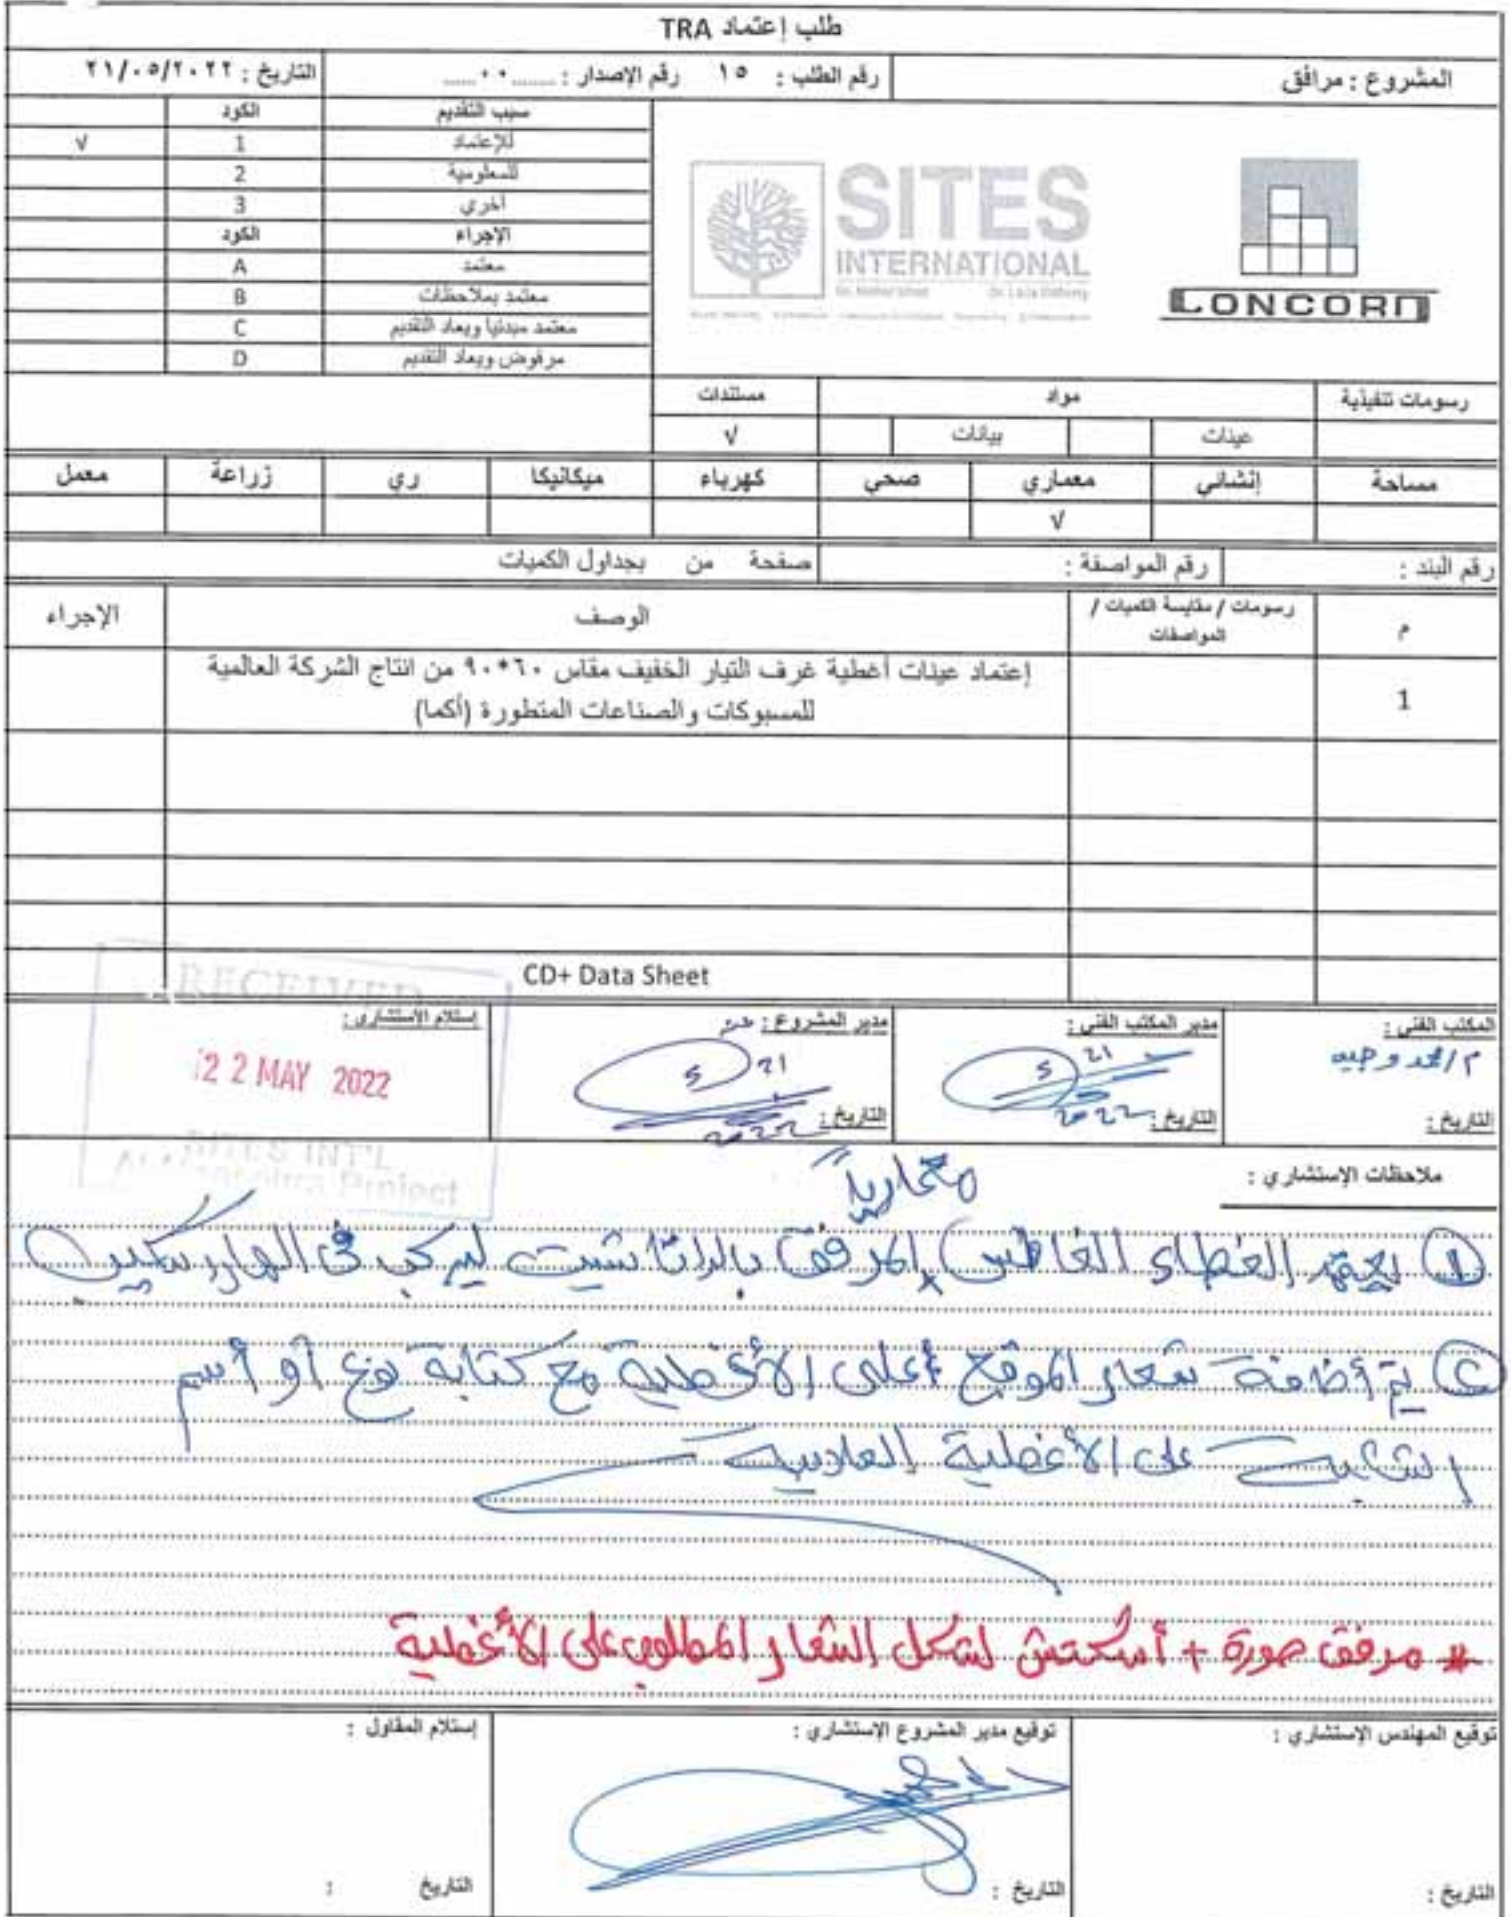 طلب إعتماد TRA
المشروع : مرافق
رقم الطلب : ١٥ رقم الإصدار : ........٠٠......
التاريخ : ٢١/٠٥/٢٠٢٢
SITES
INTERNATIONAL
LONCORD
سبب التقديم الكود
للإعتماد 1 √
للمعلومية 2
أخري 3
الإجراء الكود
معتمد A
معتمد بملاحظات B
معتمد مبدئيا ويعاد التقديم C
مرفوض ويعاد التقديم D
رسومات تنفيذية مواد مستندات
عينات بيانات √
مساحة إنشائي معماري صحي كهرباء ميكانيكا ري زراعة معمل
√
رقم البند : رقم المواصفة : صفحة من بجداول الكميات
م رسومات / مقايسة الكميات / المواصفات الوصف الإجراء
1 إعتماد عينات أغطية غرف التيار الخفيف مقاس ٦٠*٩٠ من انتاج الشركة العالمية
للمسبوكات والصناعات المتطورة (أكما)
CD+ Data Sheet
المكتب الفني : مدير المكتب الفني : مدير المشروع : إستلام الإستشاري :
م/محمد وجيه
21 5 2022
21 5 2022
التاريخ : التاريخ : التاريخ :
RECEIVED
22 MAY 2022
SITES INT'L
Project
ملاحظات الإستشاري :
معمارياً
① يعتمد الغطاء الغاطس المرفق بالداتا شيت ليركب فى الهاردسكيب
② يتم أضافة شعار الموقع أعلى الأغطية مع كتابة نوع أو أسم
على الأغطية العادية
* مرفق صورة + أسكتش لشكل الشعار المطلوب على الأغطية
توقيع المهندس الإستشاري : توقيع مدير المشروع الإستشاري : إستلام المقاول :
التاريخ : التاريخ : التاريخ :